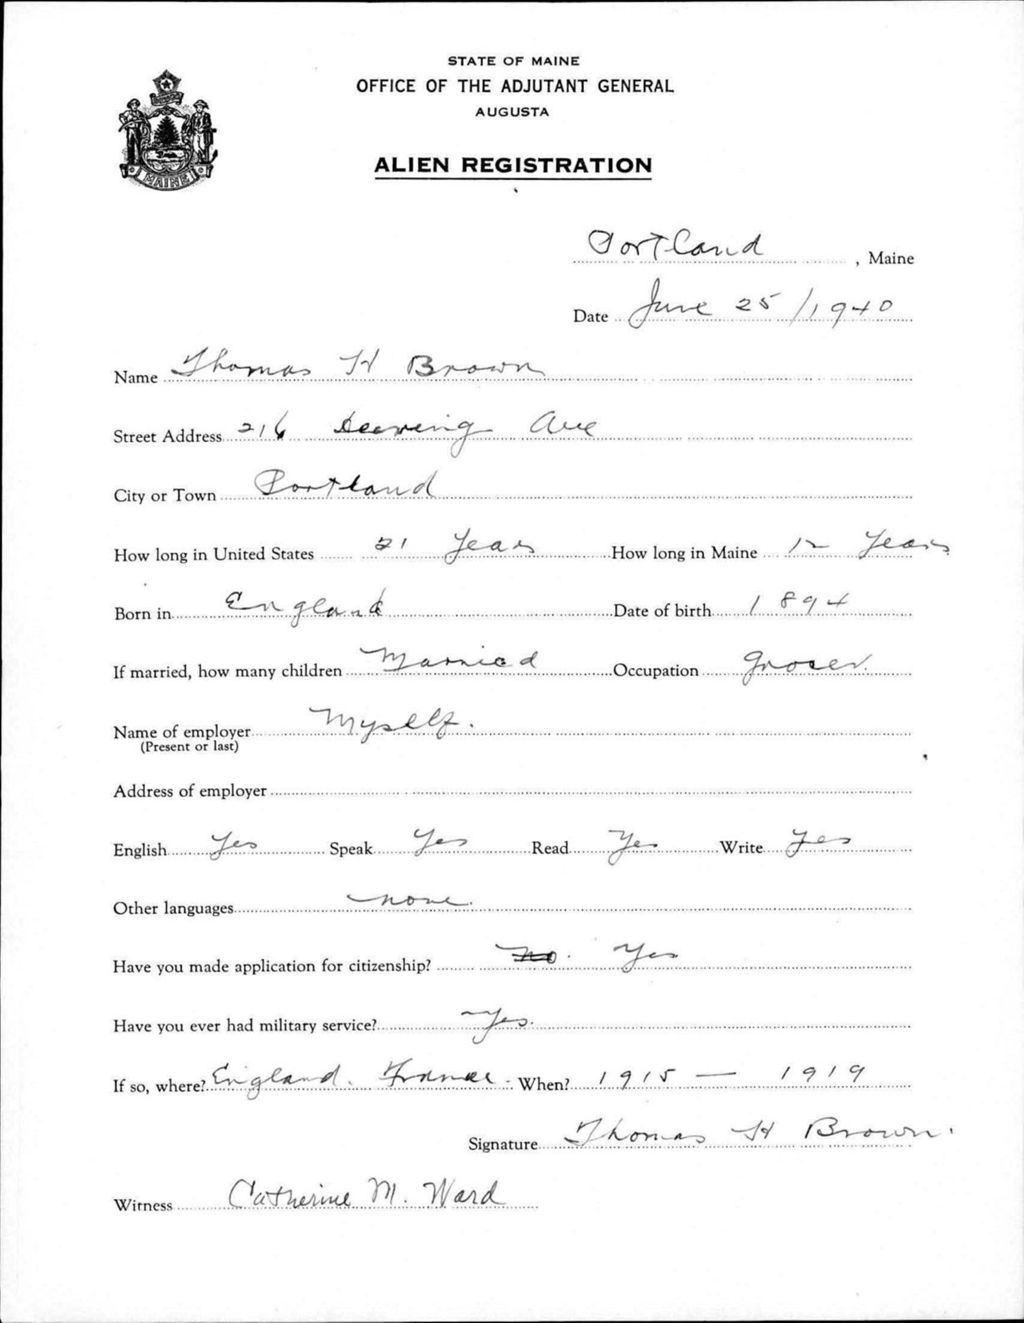 STATE OF MAINE
OFFICE OF THE ADJUTANT GENERAL
AUGUSTA
ALIEN REGISTRATION
MAINE
Portland, Maine
Date June 25/1940
Name Thomas H Brown
Street Address 216 Deering Ave
City or Town Portland
How long in United States 21 Years How long in Maine 12 Years
Born in England Date of birth 1894
If married, how many children Married Occupation Grocer.
Name of employer Myself.
(Present or last)
Address of employer
English Yes Speak Yes Read Yes Write Yes
Other languages none.
Have you made application for citizenship? no. Yes
Have you ever had military service? Yes.
If so, where? England. France. When? 1915 — 1919
Signature Thomas H Brown.
Witness Catherine M. Ward